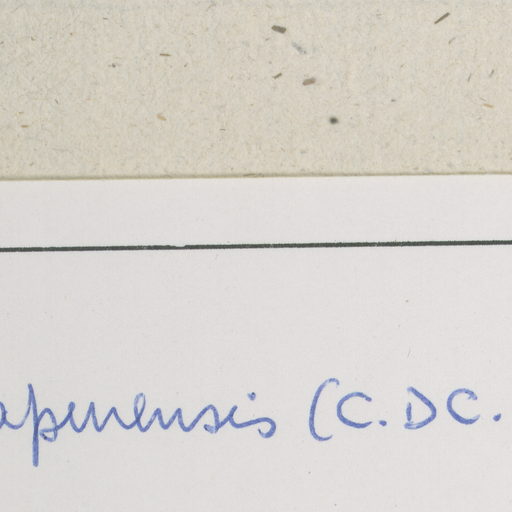 apurensis (C.DC.